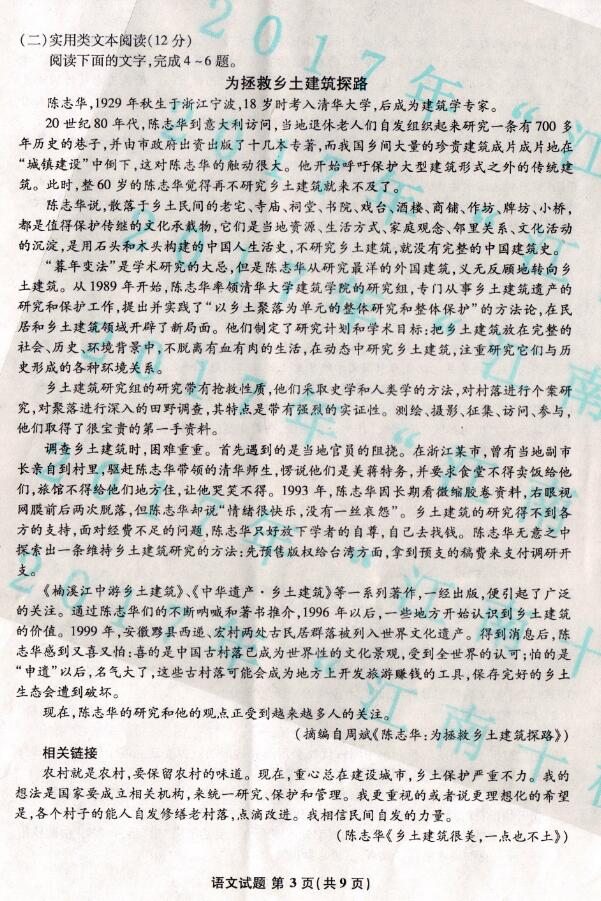 (二)实用类文本阅读(12分)
阅读下面的文字,完成4~6题。
为拯救乡土建筑探路
陈志华,1929年秋生于浙江宁波,18岁时考入清华大学,后成为建筑学专家。
20世纪80年代,陈志华到意大利访问,当地退休老人们自发组织起来研究一条有700多
年历史的巷子,并由市政府出资出版了十几本专著,而我国乡间大量的珍贵建筑成片成片地在
“城镇建设”中倒下,这对陈志华的触动很大。他开始呼吁保护大型建筑形式之外的传统建
筑。此时,整60岁的陈志华觉得再不研究乡土建筑就来不及了。
陈志华说,散落于乡土民间的老宅、寺庙、祠堂、书院、戏台、酒楼、商铺、作坊、牌坊、小桥,
都是值得保护传继的文化承载物,它们是当地资源、生活方式、家庭观念、邻里关系、文化活动
的沉淀,是用石头和木头构建的中国人生活史,不研究乡土建筑,就没有完整的中国建筑史。
“暮年变法”是学术研究的大忌,但是陈志华从研究最洋的外国建筑,义无反顾地转向乡
土建筑。从1989年开始,陈志华率领清华大学建筑学院的研究组,专门从事乡土建筑遗产的
研究和保护工作,提出并实践了“以乡土聚落为单元的整体研究和整体保护”的方法论,在民
居和乡土建筑领域开辟了新局面。他们制定了研究计划和学术目标:把乡土建筑放在完整的
社会、历史、环境背景中,不脱离有血有肉的生活,在动态中研究乡土建筑,注重研究它们与历
史形成的各种环境关系。
乡土建筑研究组的研究带有抢救性质,他们采取史学和人类学的方法,对村落进行个案研
究,对聚落进行深入的田野调查,其特点是带有强烈的实证性。测绘、摄影、征集、访问、参与,
他们取得了很宝贵的第一手资料。
调查乡土建筑时,困难重重。首先遇到的是当地官员的阻挠。在浙江某市,曾有当地副市
长亲自到村里,驱赶陈志华带领的清华师生,愣说他们是美蒋特务,并要求食堂不得卖饭给他
们,旅馆不得给他们地方住,让他哭笑不得。1993年,陈志华因长期看微缩胶卷资料,右眼视
网膜前后两次脱落,但陈志华却说“情绪很快乐,没有一丝哀怨”。乡土建筑的研究得不到各
方的支持,面对经费不足的问题,陈志华只好放下学者的自尊,自己去找钱。陈志华无意之中
探索出一条维持乡土建筑研究的方法:先预售版权给台湾方面,拿到预支的稿费来支付调研开
支。
《楠溪江中游乡土建筑》、《中华遗产·乡土建筑》等一系列著作,一经出版,便引起了广泛
的关注。通过陈志华们的不断呐喊和著书推介,1996年以后,一些地方开始认识到乡土建筑
的价值。1999年,安徽黟县西递、宏村两处古民居群落被列入世界文化遗产。得到消息后,陈
志华感到又喜又怕:喜的是中国古村落已成为世界性的文化景观,受到全世界的认可;怕的是
“申遗”以后,名气大了,这些古村落可能会成为地方上开发旅游赚钱的工具,保存完好的乡土
生态会遭到破坏。
现在,陈志华的研究和他的观点正受到越来越多人的关注。
(摘编自周斌《陈志华:为拯救乡土建筑探路》)
相关链接
农村就是农村,要保留农村的味道。现在,重心总在建设城市,乡土保护严重不力。我的
想法是国家要成立相关机构,来统一研究、保护和管理。我更重视的或者说更理想化的希望
是,各个村子的能人自发修缮老村落,点滴改进。我相信民间自发的力量。
(陈志华《乡土建筑很美,一点也不土》)
语文试题 第3页(共9页)
2017年“江
2017年“江南
2017年“江南十